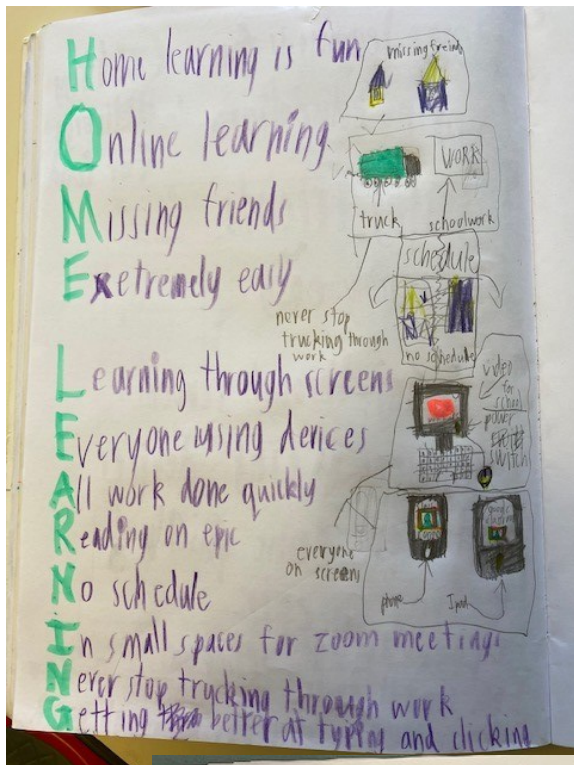 Home learning is fun
Online learning
Missing friends
Exetremely easy
Learning through screens
Everyone using devices
All work done quickly
Reading on epic
No schedule
In small spaces for zoom meetings
Never stop trucking through work
Getting better at typing and clicking
missing friends
WORK
truck
schoolwork
schedule
never stop
trucking through
work
no schedule
video
for
school
power
switch
everyone
on screens
phone
Ipad